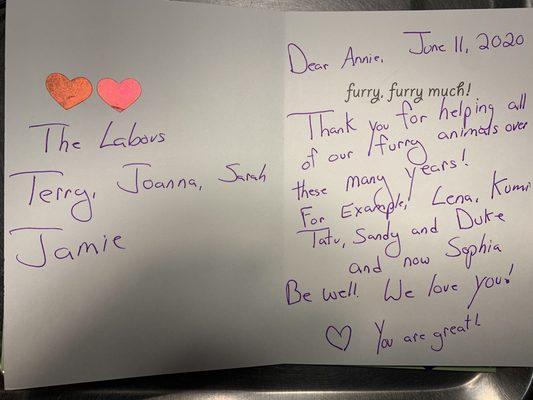 The Labous
Terry, Joanna, Sarah
Jamie
Dear Annie, June 11, 2020
furry, furry much!
Thank you for helping all
of our furry animals over
these many years!
For Example, Lena, Kumi
Tatu, Sandy and Duke
and now Sophia
Be well. We love you!
♡ You are great!